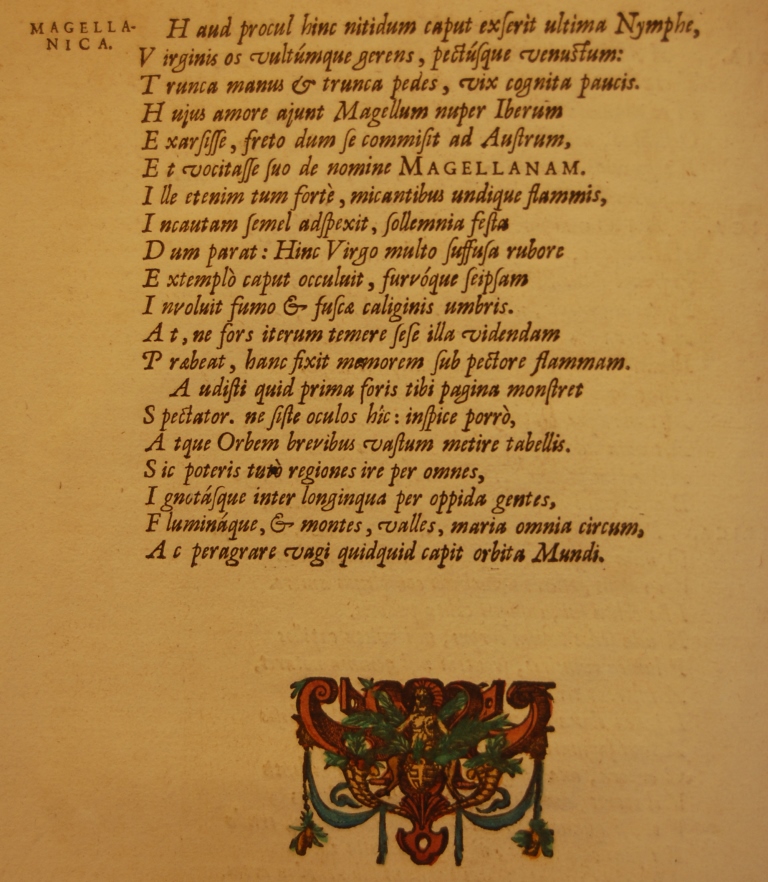 MAGELLA-
NICA.
Haud procul hinc nitidum caput exſerit ultima Nymphe,
Virginis os vultúmque gerens, pectúſque venuſtum:
Trunca manus & trunca pedes, vix cognita paucis.
Hujus amore ajunt Magellum nuper Iberum
Exarſiſſe, freto dum ſe commiſit ad Auſtrum,
Et vocitaſſe ſuo de nomine MAGELLANAM.
Ille etenim tum fortè, micantibus undique flammis,
Incautam ſemel adſpexit, ſollemnia feſta
Dum parat: Hinc Virgo multo ſuffuſa rubore
Extemplò caput occuluit, furvóque ſeipſam
Involuit fumo & fuſcæ caliginis umbris.
At, ne fors iterum temere ſeſe illa videndam
Præbeat, hanc fixit memorem ſub pectore flammam.
Audiſti quid prima foris tibi pagina monſtret
Spectator. ne ſiſte oculos hîc: inſpice porrò,
Atque Orbem brevibus vaſtum metire tabellis.
Sic poteris tutò regiones ire per omnes,
Ignotáſque inter longinqua per oppida gentes,
Flumináque, & montes, valles, maria omnia circum,
Ac peragrare vagi quidquid capit orbita Mundi.